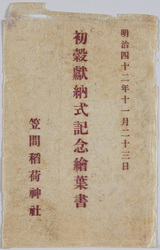 明治四十二年十一月二十三日
初穀獻納式記念繪葉書
笠間稲荷神社